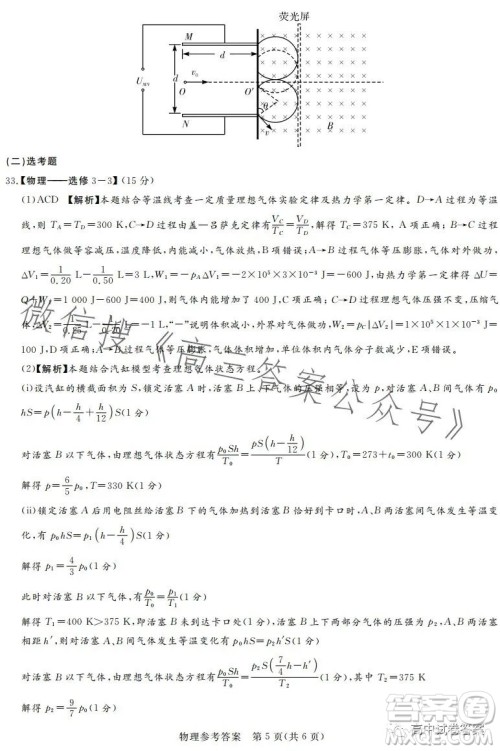 荧光屏
M
d
U_MN d O v₀ O′
θ
N v B
(二)选考题
33.【物理——选修 3-3】(15 分)
(1)ACD 【解析】本题结合等温线考查一定质量理想气体实验定律及热力学第一定律。D→A 过程为等温
线，则 T_A=T_D=300 K，C→D 过程由盖—吕萨克定律有 V_C/T_C=V_D/T_D，解得 T_C=375 K，A 项正确；B→C 过
程气体做等容减压，温度降低，内能减小，B 项错误；A→B 过程气体等压膨胀，气体对外做功，
ΔV₁=1/0.20 L-1/0.50 L=3 L，W₁=-p_AΔV₁=-2×10⁵×3×10⁻³ J=-600 J，由热力学第一定律得 ΔU=
Q+W₁=1 000 J-600 J=400 J，则气体内能增加
气体等压膨胀，气体分子数密度减小，单位体积内气体分子数减少，E 项错误。
(2)【解析】本题结合汽缸模型考查理想气体状态方程。
(i)设汽缸的横截面积为 S，锁定活塞 A 时，活塞 B 上下的气体压强相等，设为 p，对活塞 A、B 间气体有
p₀hS=p(h-h/4+h/12)S(1 分)
对活塞 B 以下气体，由理想气体状态方程有 p₀Sh/T₀=pS(h-h/12)/T(1 分)，T₀=273+t₀=300 K(1 分)
解得 p=6/5 p₀，T=330 K(1 分)
(ii)锁定活塞 A 后用电阻丝给活塞 B 下的气体加热到活塞 B 恰好到卡口时，A、B 两活塞间气体发生等温变
化，有 p₀hS=p₁(h-h/4)S(1 分)
解得 p₁=4/3 p₀(1 分)
此时对活塞 B 以下气体，有 p₀/T₀=p₁/T₁(1 分)
解得 T₁=400 K>375 K，即活塞 B 未到达卡口处(1 分)，所以活塞 B 上下两部分气体的压强为 p₂，A、B 活塞
相距 h′，则由气体发生等温变化有 p₀hS=p₂h′S(1 分)
对活塞 B 以下气体，由理想气体状态方程有 p₀Sh/T₀=p₂S(7/4 h-h′)/T₂(1 分)，其中 T₂=375 K
解得 p₂=9/7 p₀(1 分)
物理参考答案 第 5 页(共 6 页)
微信搜《高三答案公众号》
高中试卷答案